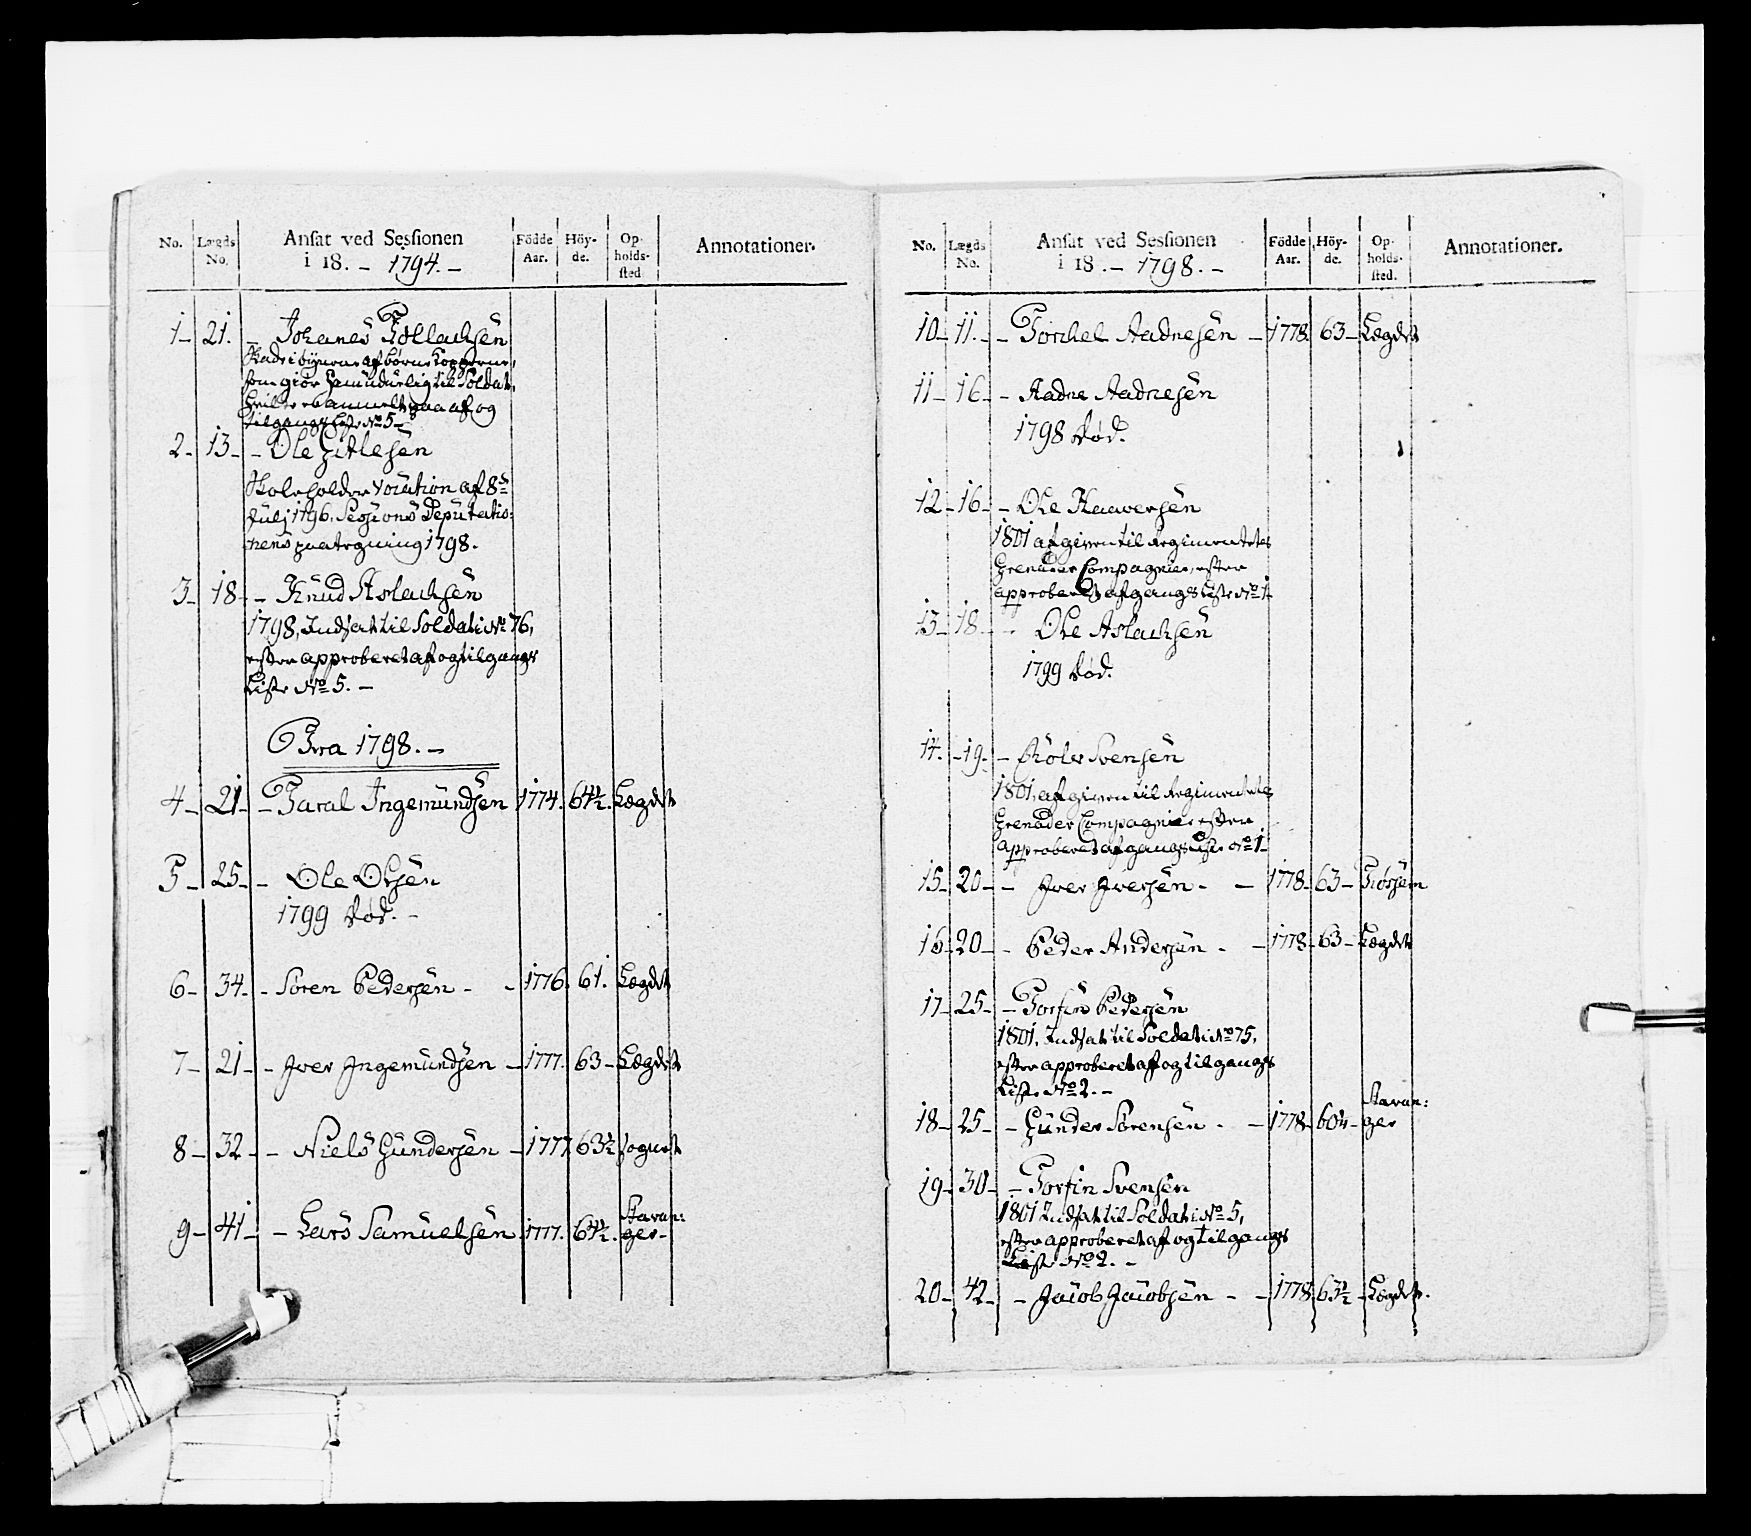 No. Lægds No. Ansat ved Sessionen i 18. - 1794. - Födde Aar. Höyde. Opholds-sted. Annotationer.
1 - 21. - Johanes Tollachsen
Skade i öynene af börne Kopperne,
som giör ham udüelig til Soldat,
hvilke er anmelt paa af og
tilgangs Liste No 5 -
2 - 13 - - Ole
Skoleholder Vocation af 8de
Julj 1796. Sessions Deputatio-
nens paategning 1798.
3 - 18 - - Knud Aslachsen
1798, Indsat til Soldat i No 76,
efter approberet af og tilgangs
Liste No 5. -
Fra 1798. -
4 - 21 - - Taral Ingemundsen 1774. 64½. Lægdet
5 - 25 - - Ole Olsen
1799 död. -
6 - 34 - - Sören Pedersen - - 1776. 61. Lægdet
7 - 21 - - Iver Ingemundsen - 1777. 63 - Lægdet
8 - 32 - - Niels Gundersen - 1777. 63½ Sognet
9 - 41 - - Lars Samuelsen 1777. 64½. Stavan:
ger -
No. Lægds No. Ansat ved Sessionen i 18. - 1798. - Födde Aar. Höyde. Opholds-sted. Annotationer.
10 - 11. - - Torchel Aadnesen - 1778. 63 - Lægdet
11 - 16 - - Aadne Aadnesen
1798 död.
12 - 16 - - Ole Haaversen
1801 afgiven til Regimentetes
Grenader Compagnie, efter
approberet afgangs Liste No 1 -
13 - 18 - - Ole Aslachsen
1799 död.
14. - 19 - - Svensen
1801, afgiven til Regimentetes
Grenader Compagnie efter
approberet afgangs Liste No 1 -
15 - 20 - - Iver Iversen - - 1778 - 63 -
16 - 20 - - Peder Andersen - - 1778 - 63 - Lægdet
17 - 25 - - Torfin Pedersen
1801, Indsat til Soldat i No 75,
efter approberet af og tilgangs
Liste No 2. -
18 - 25 - - Gunder Sörensen - - 1778 - Stavan:
ger
19 - 30 - - Torfin Svensen
1801 Indsat til Soldat i No 5,
efter approberet af og tilgangs
Liste No 2. -
20 - 42 - - Jacob Jacobsen - - 1778. 63½ - Lægdet.